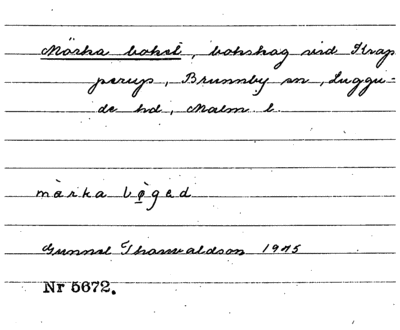 Mörka bokel, bokskog vid Krap
perup, Brunnby sn, Luggu-
de hd, Malm l.
märka bǫ̀ged
Gunnel Thorvaldson 1975
Nr 5672.